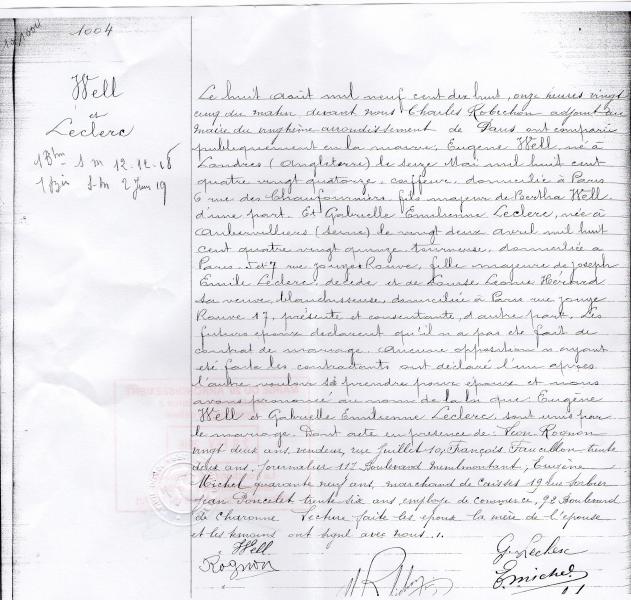 1004
Well
et
Leclerc
12-12-18
2 Juin 19
Le huit Août mil neuf cent dix huit, onze heures vingt
cinq du matin devant nous Charles Robichon adjoint au
Maire du vingtième arrondissement de Paris ont comparu
publiquement en la mairie, Eugène Well, né à
Londres (Angleterre) le seize Mai mil huit cent
quatre vingt quatorze, coiffeur, domicilié à Paris
6 rue des Chaufourniers fils majeur de Bertha Well
d'une part. Et Gabrielle Emilienne Leclerc, née à
Aubervilliers (Seine) le vingt deux avril mil huit
cent quatre vingt quinze, tourneuse, domiciliée à
Paris, rue Jouye Rouve, fille majeure de Joseph
Emile Leclerc, décédé et de Louise Léonie
sa veuve blanchisseuse, domiciliée à Paris rue Jouye
Rouve 17, présente et consentante, d'autre part. Les
futurs époux déclarent qu'il n'a pas été fait de
contrat de mariage. Aucune opposition n'ayant
été faite les contractants ont déclaré l'un après
l'autre vouloir se prendre pour époux et nous
avons prononcé au nom de la loi que Eugène
Well et Gabrielle Emilienne Leclerc, sont unis par
le mariage. Dont acte en présence de Léon Rognon
vingt deux ans, vendeur, rue Juillet 10, François Faucillon trente
deux ans, journalier 117 Boulevard Menilmontant, Eugène
Michel quarante neuf ans, marchand de caisses 19 rue Sorbier
Jean Poncelet trente six ans, employé de commerce, 92 Boulevard
de Charonne. Lecture faite les époux la mère de l'épouse
et les témoins ont signé avec nous.
Well
Rognon
G. Leclerc
E. Michel